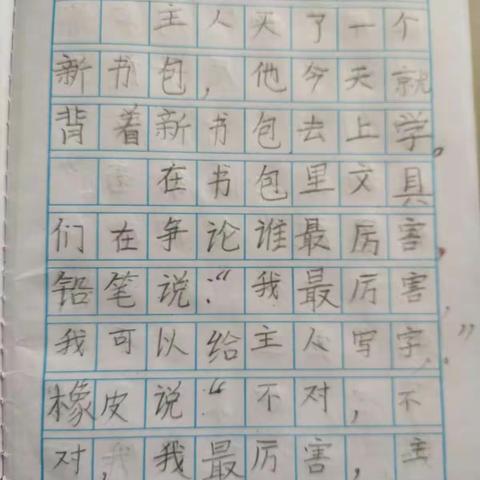 主人买了一个
新书包，他今天就
背着新书包去上学。
在书包里文具
们在争论谁最厉害，
铅笔说：“我最厉害，
我可以给主人写字。”
橡皮说：“不对，不
对，我最厉害，主